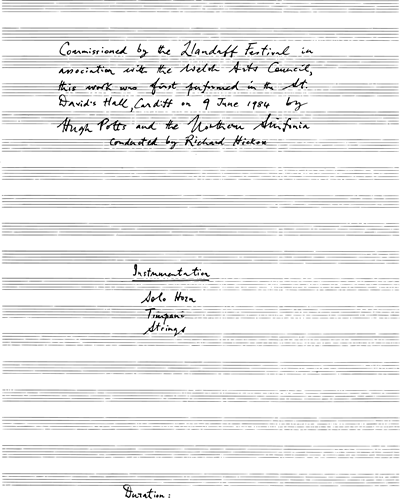 Commissioned by the Llandaff Festival in
association with the Welsh Arts Council,
this work was first performed in the St.
David's Hall, Cardiff on 9 June 1984 by
Hugh Potts and the Northern Sinfonia
conducted by Richard Hickox
Instrumentation
Solo Horn
Timpani
Strings
Duration: